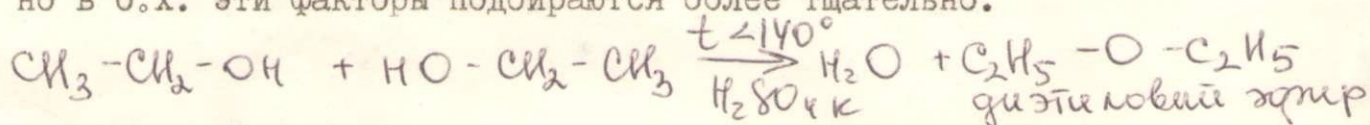 но в о.х. эти факторы подбираются более тщательно.
CH₃-CH₂-OH + HO-CH₂-CH₃ →(t<140° / H₂SO₄ к) H₂O + C₂H₅-O-C₂H₅
диэтиловый эфир